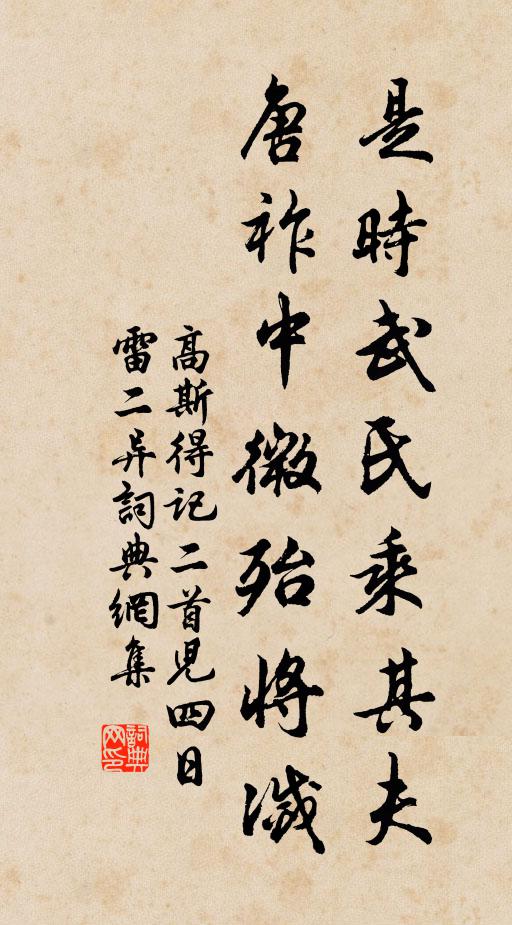 是時武氏乘其夫
唐祚中微殆將滅
高斯得記二首見四日
雷二异詞典網集
詞典网印